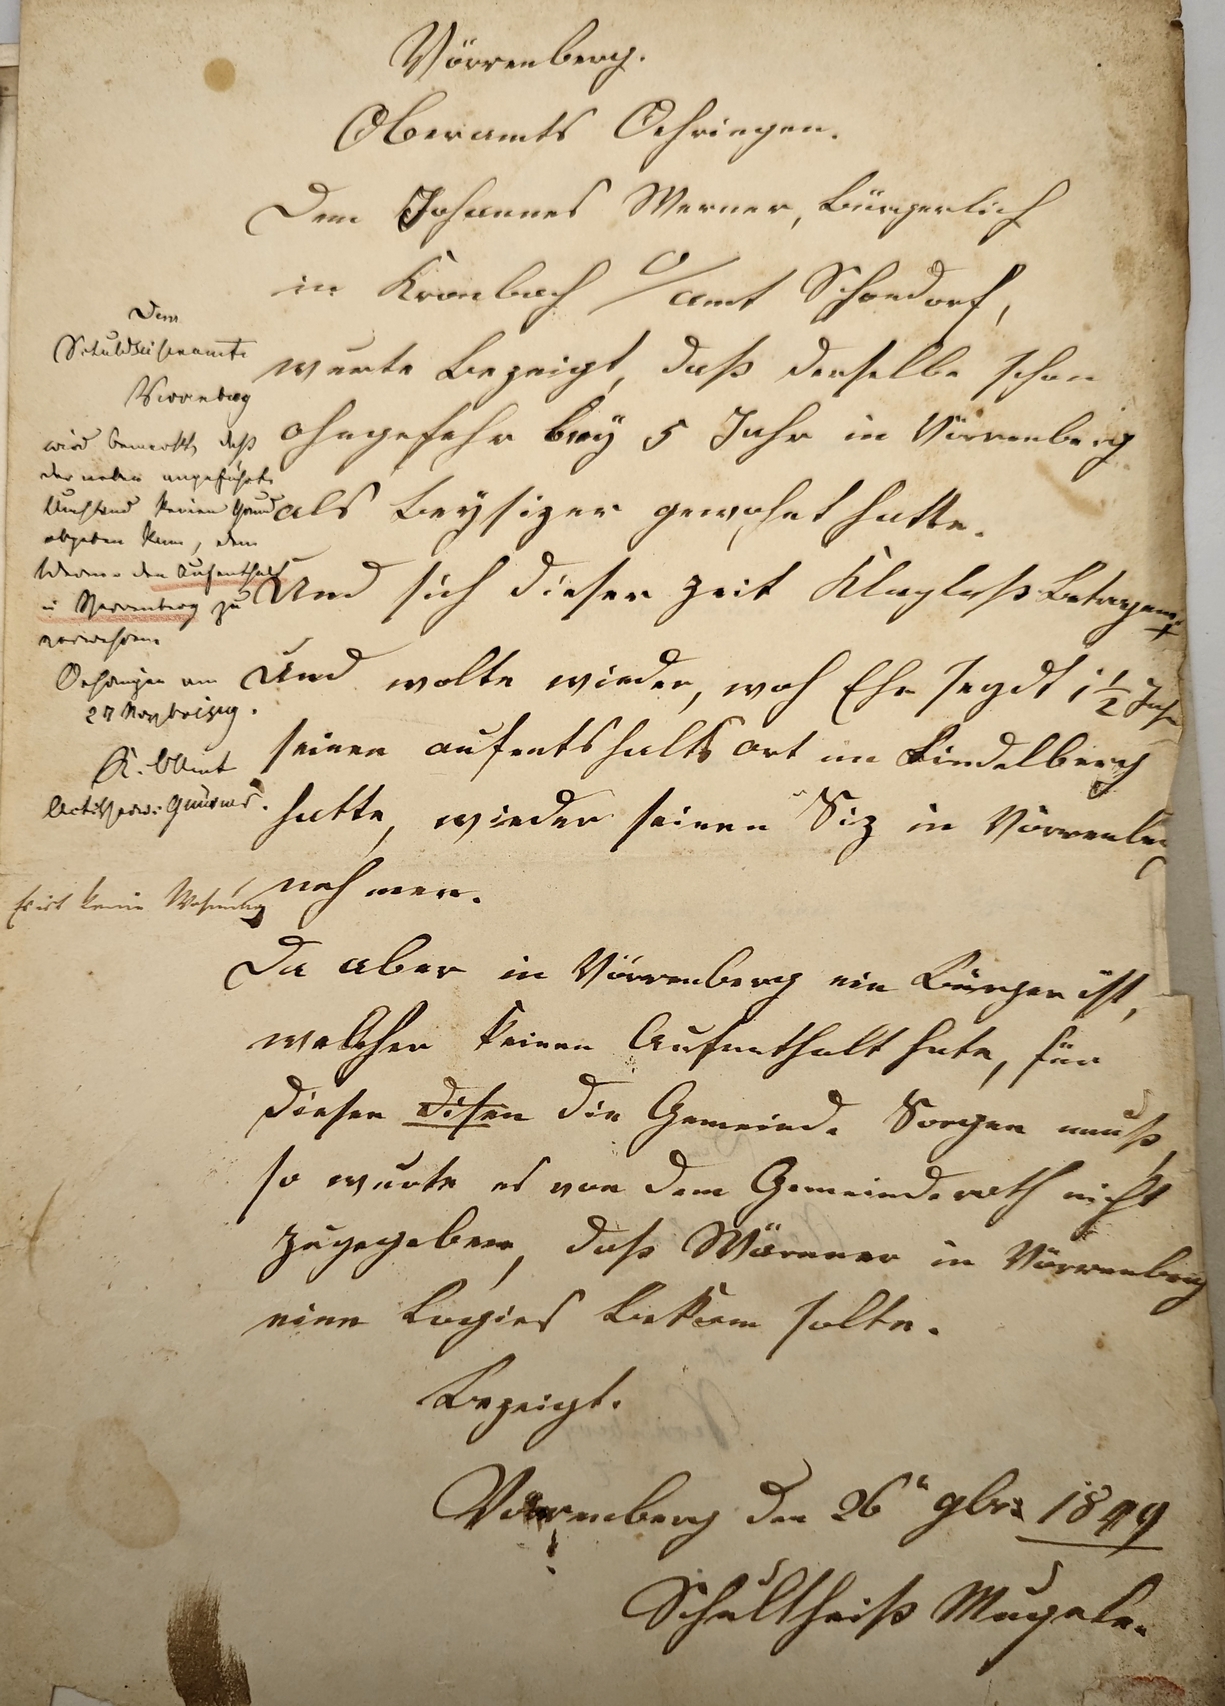 Vörrenberg.
Oberamts Oehringen.
Dem Johannes Werner, Bürgerlich
in Kronbach O/amt Schondorf,
wurte bezeigt, daß derselbe schon
ohngefehr bey 5 Jahr in Vörrenberg
als Beysizer gewohnt hatte.
Und sich dieser zeit Klaglosß betragen.
Und wolte wieder, woh Ehr seydt 1 1/2 Jahr
seinen aufentshalts ort im Lindelberg
hatte, wieder seinen Siz in Vörrenberg
nehmen.
Da aber in Vörrenberg ein Bürger ist,
welcher keinen Aufenthalt hate, für
diesen disen die Gemeinde Sorgen muß,
so wurte es von dem Gemeinderath nicht
zugegeben, daß Wärner in Vörrenberg
eine Logies bekom solte.
Bezeigt.
Vörrenberg den 26n 9br. 1849
Schultheiß Mugele.
Dem
Schuldheisenamte
Verrenberg
wird bemerkt, daß
der neben angeführte
Umstand keinen Grund
abgeben kann, dem
Werner den Aufenthalt
in Verrenberg zu
verwehren.
Oehringen am
27 Nov
K. OAmt
Es ist keine Wohnung